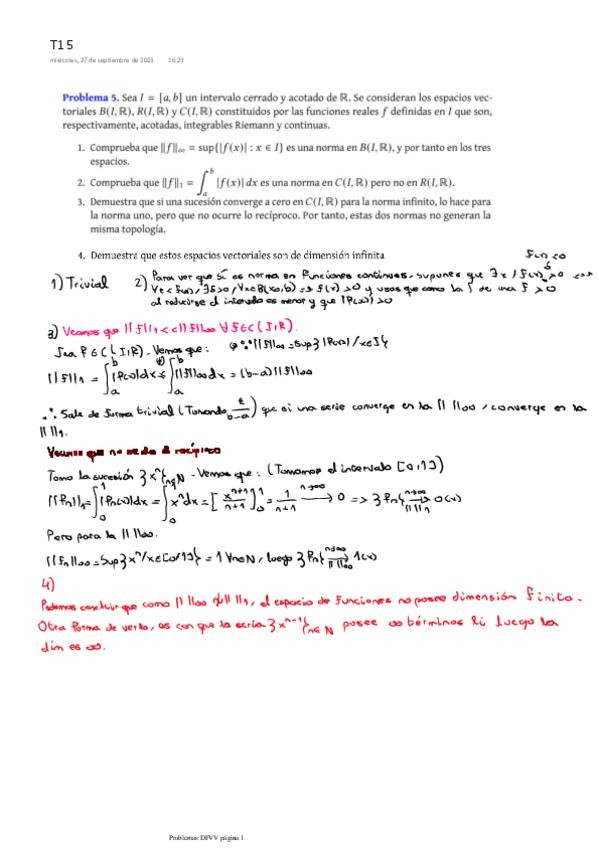 T15
miércoles, 27 de septiembre de 2023 16:23
Problema 5. Sea I = [a, b] un intervalo cerrado y acotado de ℝ. Se consideran los espacios vec-
toriales B(I, ℝ), R(I, ℝ) y C(I, ℝ) constituidos por las funciones reales f definidas en I que son,
respectivamente, acotadas, integrables Riemann y continuas.
1. Comprueba que ||f||∞ = sup{|f(x)| : x ∈ I} es una norma en B(I, ℝ), y por tanto en los tres
espacios.
2. Comprueba que ||f||₁ = ∫ₐᵇ |f(x)| dx es una norma en C(I, ℝ) pero no en R(I, ℝ).
3. Demuestra que si una sucesión converge a cero en C(I, ℝ) para la norma infinito, lo hace para
la norma uno, pero que no ocurre lo recíproco. Por tanto, estas dos normas no generan la
misma topología.
4. Demuestra que estos espacios vectoriales son de dimensión infinita
1) Trivial 2) Para ver que sí es norma en funciones continuas, supones que ∃x / f(x)>0
al reducirse el intervalo es menor y que |f(x)| >0
3) Veamos que ||f||₁ < c||f||∞ ∀f∈C(I,ℝ).
Sea f∈C(I,ℝ). Vemos que: ||f||∞ = Sup{|f(x)| / x∈I}
||f||₁ = ∫ₐᵇ |f(x)|dx ≤ ∫ₐᵇ ||f||∞ dx = (b-a)||f||∞
∴ Sale de forma trivial (Tomando ε/(b-a)) que si una serie converge en la || ||∞, converge en la
|| ||₁.
Veamos que no se da el recíproco
Tomo la sucesión {xⁿ}n∈N - Vemos que: (Tomamos el intervalo [0,1])
||fn||₁ = ∫₀¹ |fn(x)|dx = ∫₀¹ xⁿdx = [xⁿ⁺¹/(n+1)]₀¹ = 1/(n+1) —n→∞→ 0 => {fn} —n→∞, || ||₁→ 0(x)
Pero para la || ||∞.
||fn||∞ = Sup{xⁿ/x∈[0,1]} = 1 ∀n∈N, luego {fn} —n→∞, || ||∞→ 1(x)
4)
Podemos concluir que como || ||∞ ≁ || ||₁, el espacio de funciones no posee dimensión finita.
Otra forma de verlo, es con que la serie {xⁿ⁻¹}n∈N posee ∞ términos li luego la
dim es ∞.
Problemas DFVV página 1